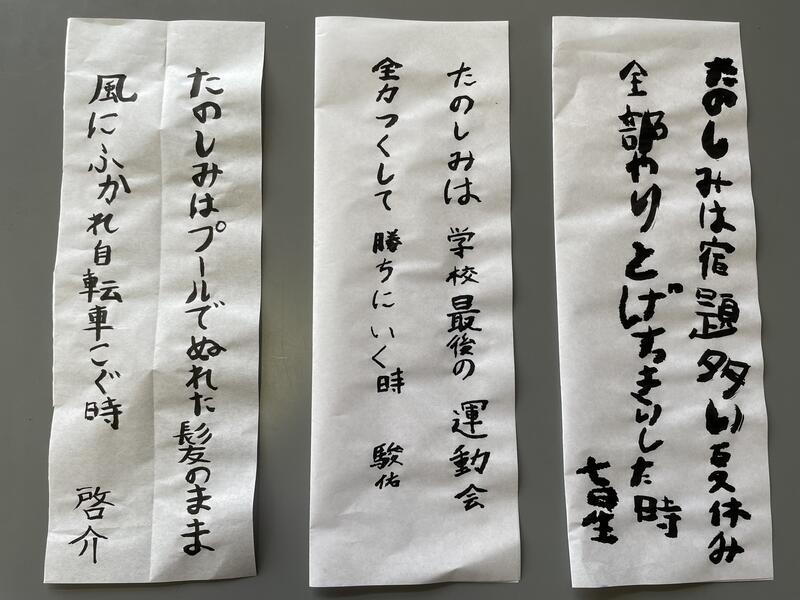 たのしみは宿題多い夏休み
全部やりとげすっきりした時
たのしみは学校最後の運動会
全力つくして勝ちにいく時
駿佑
たのしみはプールでぬれた髪のまま
風にふかれ自転車こぐ時
啓介